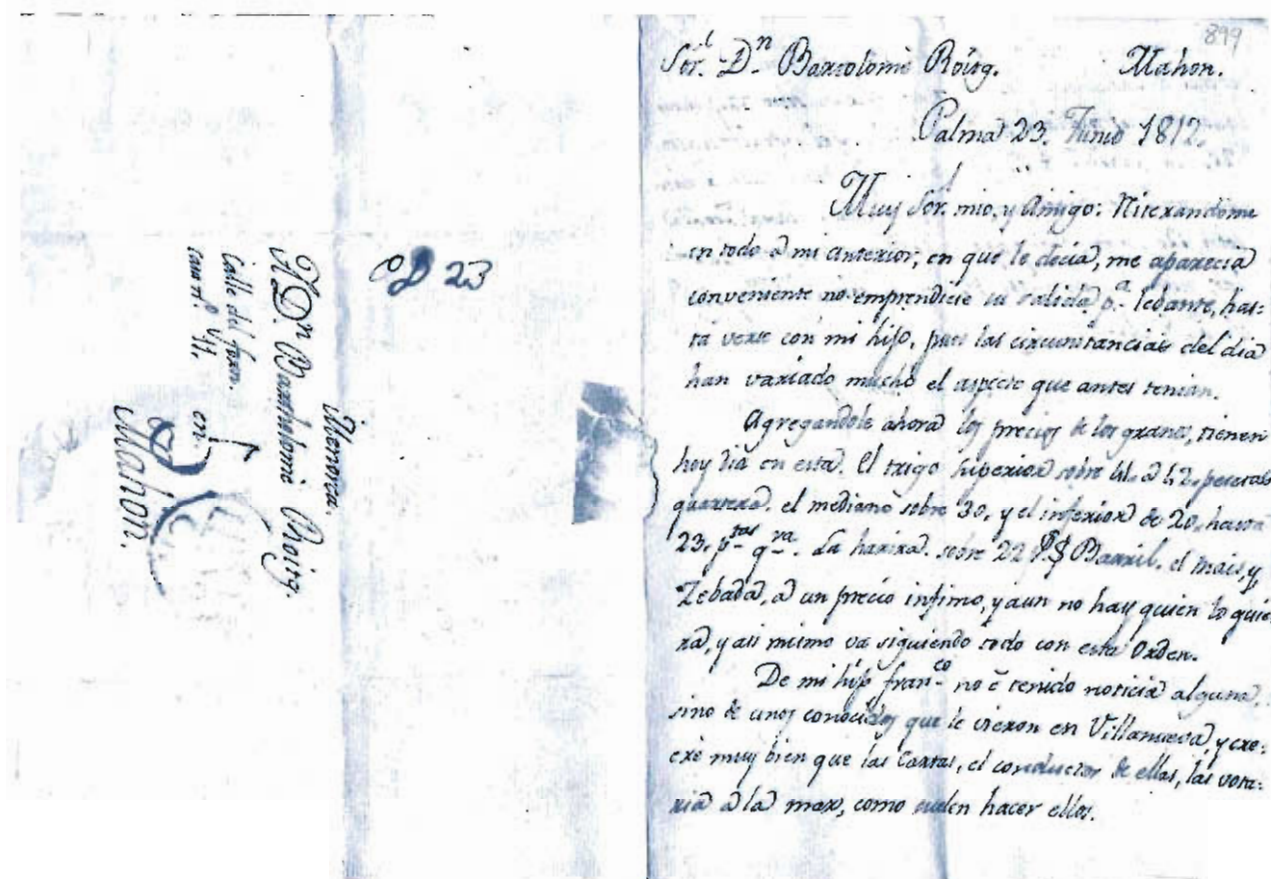 899
Sor.l Dn Bartolome Roig. Mahon.
Palma 23. Junio 1812.
Muy Sor. mio, y Amigo: Ritexandome
en todo a mi anterior, en que le decia, me aparecia
conveniente no emprendiese su salida p.a lebante, has-
ta verse con mi hijo, pues las circunstancias del dia
han variado mucho el aspecto que antes tenian.
Agregandole ahora los precios de los granos, tienen
hoy dia en esta. El trigo superior sobre 41. a 42. pesetas
quartera. el mediano sobre 30, y el inferior de 20. hasta
23. ptas qra. La harina sobre 22 P.$ Barril. el mais, y
Zebada, a un precio infimo, y aun no hay quien lo quie-
ra, y asi mismo va siguiendo todo con esta Orden.
De mi hijo franco no é tenido noticia alguna,
sino de unos conocidos que le vieron en Villanueva, y cre-
eré muy bien que las Cartas, el conductor de ellas, las vota-
ria a la mar, como suelen hacer ellos.
23
Menorca.
A Dn Bartholomé Roig.
Calle del
casa no 41. en
Mahon.